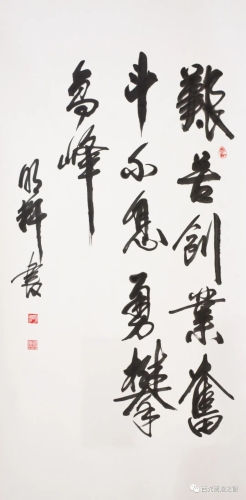 艱苦創業奮
斗不息勇攀
高峰
明輝書